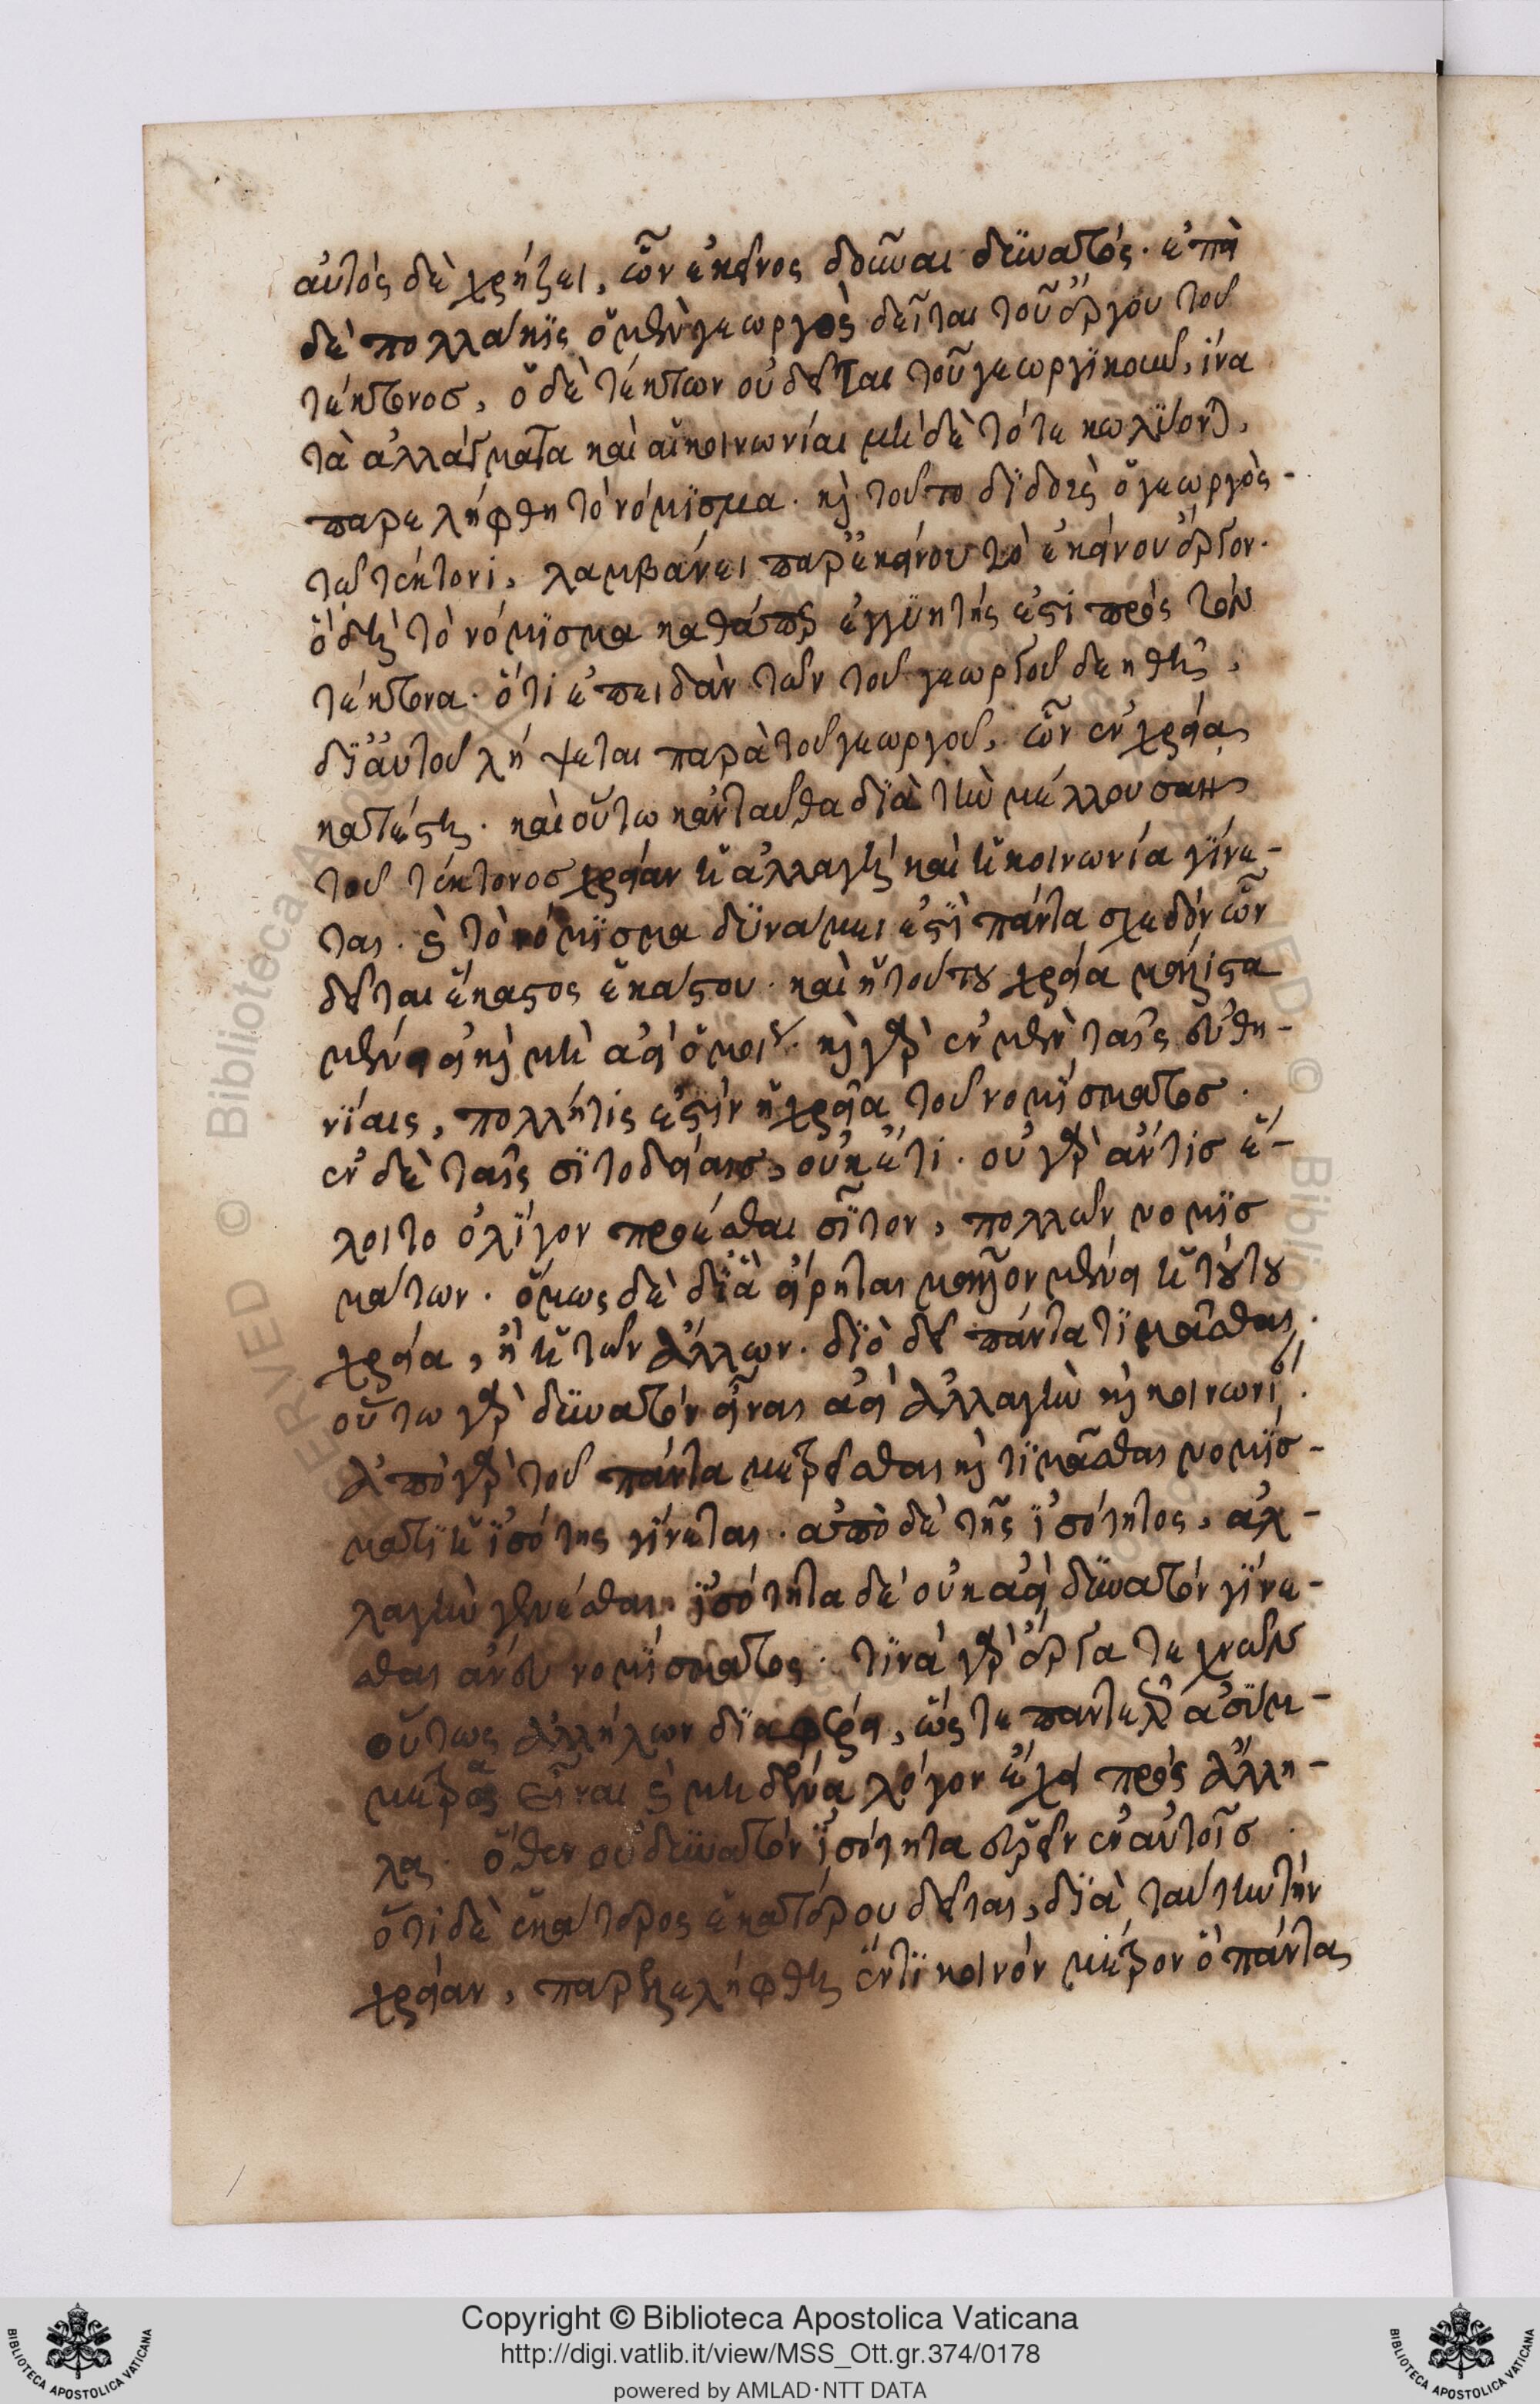 αὐτὸς δὲ χρήζει, ὧν ἐκεῖνος δοῦναι δυνατός. ἐπεὶ
δὲ πολλάκις ὁ μὲν γεωργὸς δεῖται τοῦ ἔργου τοῦ
τέκτονος, ὁ δὲ τέκτων οὐ δεῖται τοῦ γεωργικοῦ, ἵνα
τὰ ἀλλάγματα καὶ αἱ κοινωνίαι μὴ δὲ τότε κωλύονται,
παρελήφθη τὸ νόμισμα. καὶ τοῦτο διδοὺς ὁ γεωργὸς
τῷ τέκτονι, λαμβάνει παρ' ἐκείνου τὸ ἐκείνου ἔργον.
ὃ δὴ τὸ νόμισμα καθάπερ ἐγγυητής ἐστι πρὸς τὸν
τέκτονα. ὅτι ἐπειδὰν τῶν τοῦ γεωργοῦ δεηθῇ,
δι' αὐτοῦ λήψεται παρὰ τοῦ γεωργοῦ, ὧν ἐν χρείᾳ
κατέστη. καὶ οὕτω κἀνταῦθα διὰ τὴν μέλλουσαν
τοῦ τέκτονος χρείαν ἡ ἀλλαγὴ καὶ ἡ κοινωνία γίνε-
ται. καὶ τὸ νόμισμα δυνάμει ἐστὶ πάντα σχεδὸν ὧν
δεῖται ἕκαστος ἑκάστου. καὶ ἡ τούτου χρεία μάλιστα
μένει καὶ μὴ ἀεὶ ὁμοίως. καὶ γὰρ ἐν μὲν ταῖς εὐθη-
νίαις, πολλή τις ἐστὶν ἡ χρεία τοῦ νομίσματος.
ἐν δὲ ταῖς σιτοδείαις, οὐκέτι. οὐ γὰρ ἄν τις ἕ-
λοιτο ὀλίγον προέσθαι σῖτον, πολλῶν νομισ
μάτων. ὅμως δὲ διὰ εἴρηται μᾶλλον μένει ἡ τούτου
χρεία, ἢ ἡ τῶν ἄλλων. διὸ δεῖ πάντα τιμᾶσθαι.
οὕτω γὰρ δυνατὸν εἶναι ἀεὶ ἀλλαγὴν καὶ κοινωνίαν.
ἀπὸ γὰρ τοῦ πάντα μετρεῖσθαι καὶ τιμᾶσθαι νομίσ-
ματι ἡ ἰσότης γίνεται. ἀπὸ δὲ τῆς ἰσότητος, ἀλ-
λαγὴν γενέσθαι. ἰσότητα δὲ οὐκ ἀεὶ δυνατὸν γίνε-
σθαι ἄνευ νομίσματος. τινὰ γὰρ ἔργα τεχνῶν
οὕτως ἀλλήλων διαφέρει, ὥστε παντελῶς ἀσύμ-
μετρα εἶναι καὶ μηδένα λόγον ἔχειν πρὸς ἄλλη-
λα. ὅθεν οὐ δυνατὸν ἰσότητα εὑρεῖν ἐν αὐτοῖς.
ὅτι δὲ ἑκάτερος ἑκατέρου δεῖται, διὰ ταύτην τὴν
χρείαν, παρεξελήφθη ἕν τι κοινὸν μέτρον ὃ πάντα